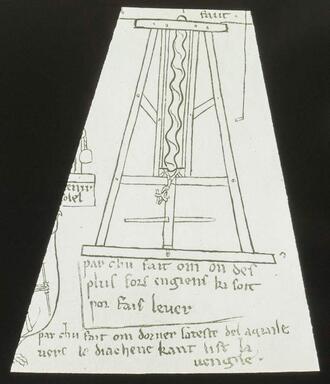 faut.
par chu fait om on des
plus fors engiens ki soit
por fais lever
par chu fait om dorner la teste del aquile
vers le diachene kant list la
vengile.